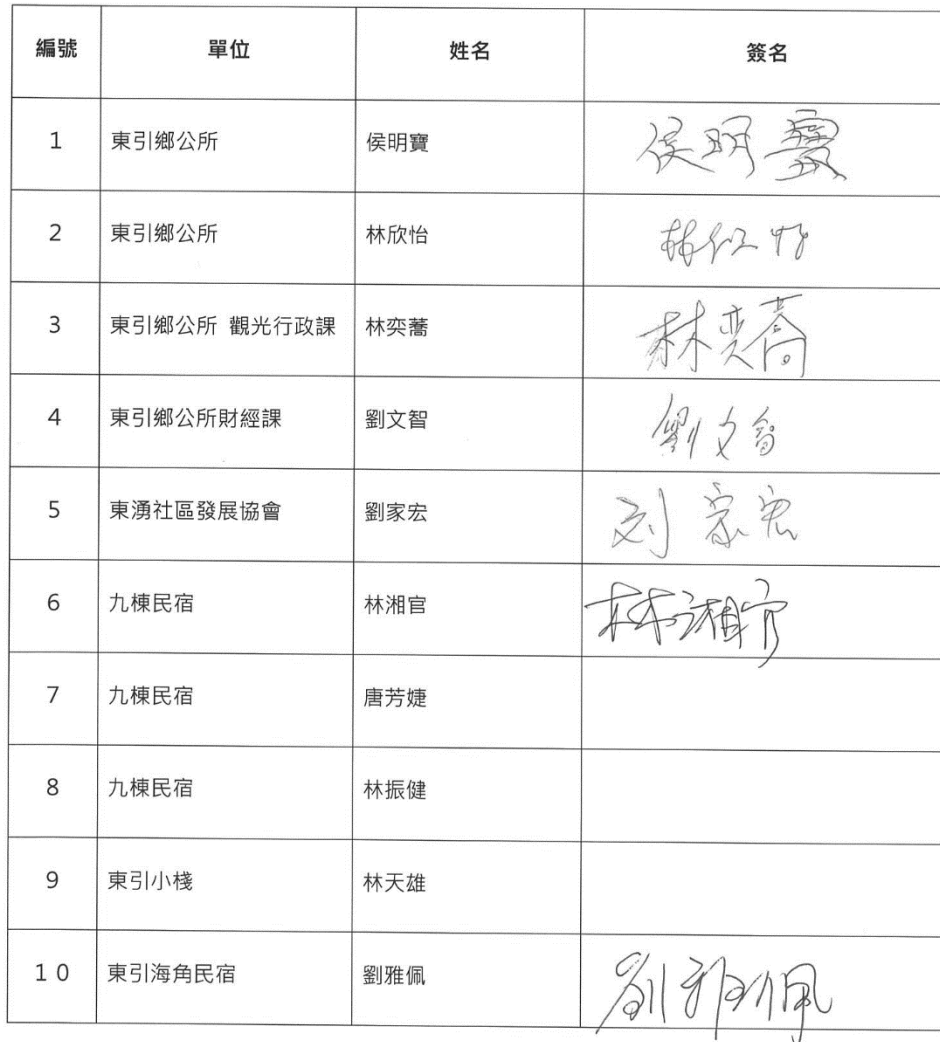 編號 單位 姓名 簽名
1 東引鄉公所 侯明寶 侯明寶
2 東引鄉公所 林欣怡 林欣怡
3 東引鄉公所 觀光行政課 林奕蕎 林奕蕎
4 東引鄉公所財經課 劉文智 劉文智
5 東湧社區發展協會 劉家宏 刘家宏
6 九棟民宿 林湘官 林湘官
7 九棟民宿 唐芳婕
8 九棟民宿 林振健
9 東引小棧 林天雄
10 東引海角民宿 劉雅佩 劉雅珮